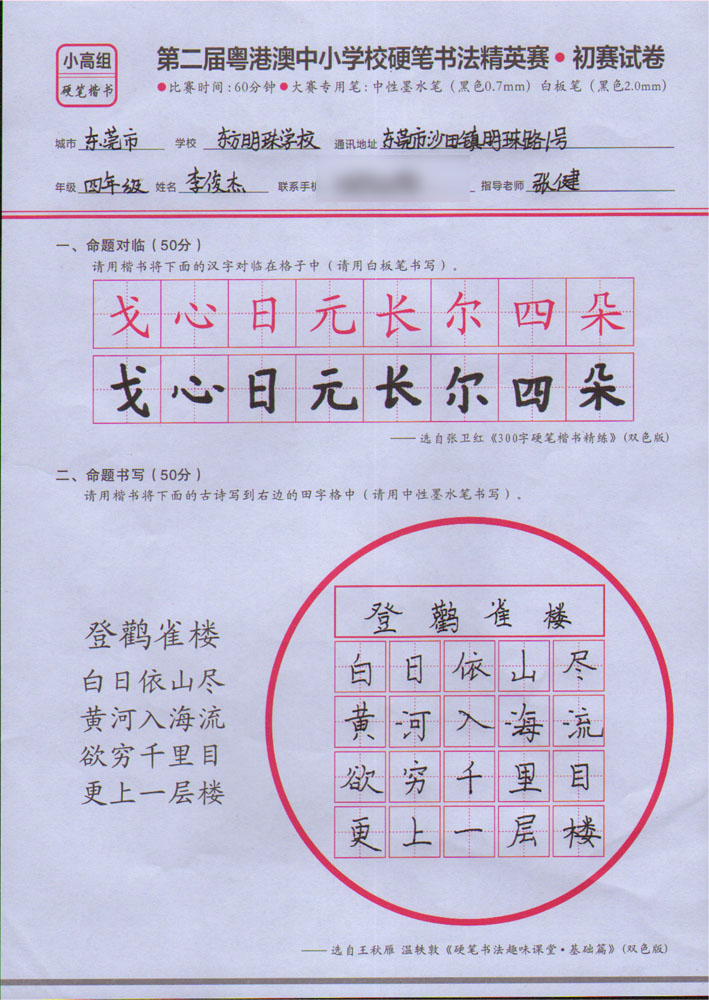 小高组
硬笔楷书
第二届粤港澳中小学校硬笔书法精英赛•初赛试卷
●比赛时间:60分钟●大赛专用笔:中性墨水笔(黑色0.7mm) 白板笔(黑色2.0mm)
城市 东莞市 学校 东方明珠学校 通讯地址 东莞市沙田镇明珠路1号
年级 四年级 姓名 李俊杰 联系手机 指导老师 张健
一、命题对临(50分)
请用楷书将下面的汉字对临在格子中(请用白板笔书写)。
戈心日元长尔四朵
戈心日元长尔四朵
—— 选自张卫红《300字硬笔楷书精练》(双色版)
二、命题书写(50分)
请用楷书将下面的古诗写到右边的田字格中(请用中性墨水笔书写)。
登鹳雀楼
白日依山尽
黄河入海流
欲穷千里目
更上一层楼
登鹳雀楼
白日依山尽
黄河入海流
欲穷千里目
更上一层楼
—— 选自王秋雁 温轶敦《硬笔书法趣味课堂·基础篇》(双色版)